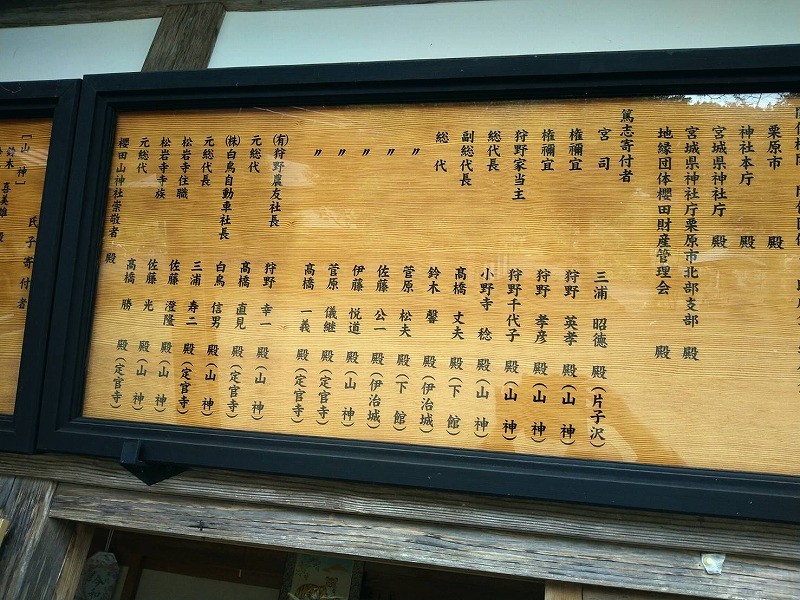 栗原市 殿
神社本庁 殿
宮城県神社庁 殿
宮城県神社庁栗原市北部支部 殿
地縁団体櫻田財産管理会 殿
篤志寄付者
宮司 三浦 昭德 殿(片子沢)
権禰宜 狩野 英孝 殿(山神)
権禰宜 狩野 孝彦 殿(山神)
狩野家当主 狩野千代子 殿(山神)
総代長 小野寺 稔 殿(山神)
副総代長 高橋 丈夫 殿(下館)
総代 鈴木 馨 殿(伊治城)
〃 菅原 松夫 殿(下館)
〃 佐藤 公一 殿(伊治城)
〃 伊藤 悦道 殿(山神)
〃 菅原 儀継 殿(定官寺)
〃 高橋 一義 殿(定官寺)
(有)狩野農友社長 狩野 幸一 殿(山神)
元総代 高橋 直見 殿(定官寺)
(株)白鳥自動車社長 白鳥 信男 殿(山神)
元総代長 三浦 寿二 殿(定官寺)
松岩寺住職 佐藤 澄隆 殿(山神)
松岩寺寺族 佐藤 光 殿(山神)
元総代 高橋 勝 殿(定官寺)
櫻田山神社崇敬者 殿
氏子寄付者
[山神]
喜美雄 殿